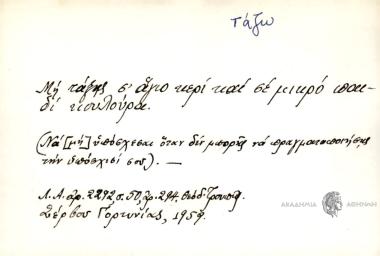 τάζω
Μή τάξῃς σ' ἅγιο κερί καί σέ μικρό παι-
δί κουλούρα.
(Νά [μή] ὑπόσχεσαι ὅταν δέν μπορῇς νά πραγματοποιήσῃς
τήν ὑπόσχεσί σου). —
Λ.Α. ἀρ. 2292 σ. 50, ἀρ. 294, Θεόδ.
Ζέρβου Γορτυνίας, 1959.
ΑΚΑΔΗΜΙΑ ΑΘΗΝΩΝ